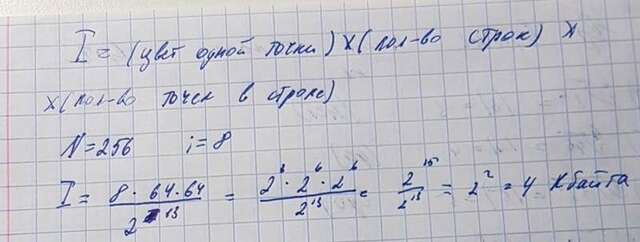 I = (цвет одной точки) × (кол-во строк) ×
× (кол-во точек в строке)
N = 256 i = 8
I = 8 · 64 · 64 / 2^13 = 2^3 · 2^6 · 2^6 / 2^13 = 2^15 / 2^13 = 2^2 = 4 Кбайта